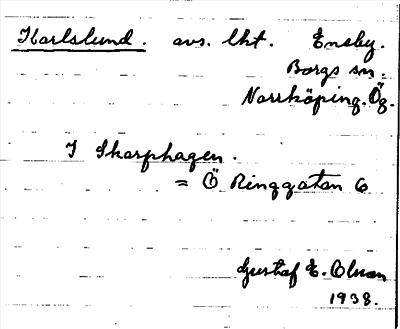 Karlslund. avs. lht. Eneby.
Borgs sn.
Norrköping. Ög.
I Skarphagen.
= Ö Ringgatan 6
Gustaf E. Olsson
1938.